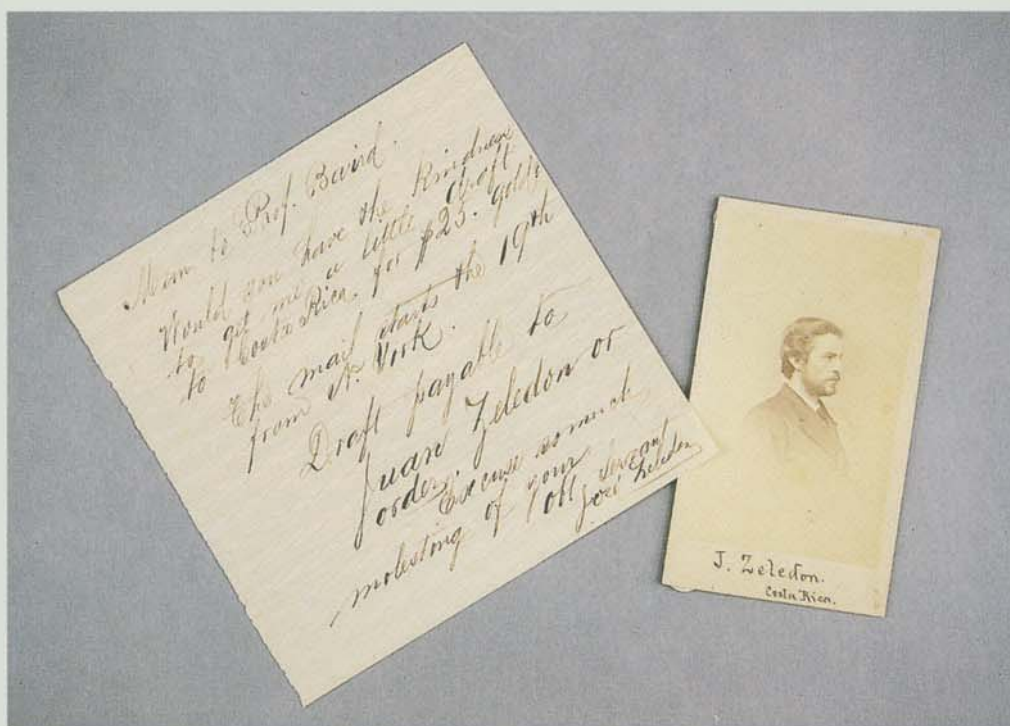 Mem to Prof. Baird.
Would you have the kindness
to get me a little draft
to Costa Rica, for $25. gold?
The mail starts the 19th
from N. York.
Draft payable to
Juan Zeledon or
order.
Excuse so much
molesting of your
obt servant
José Zeledon
J. Zeledon.
Costa Rica.